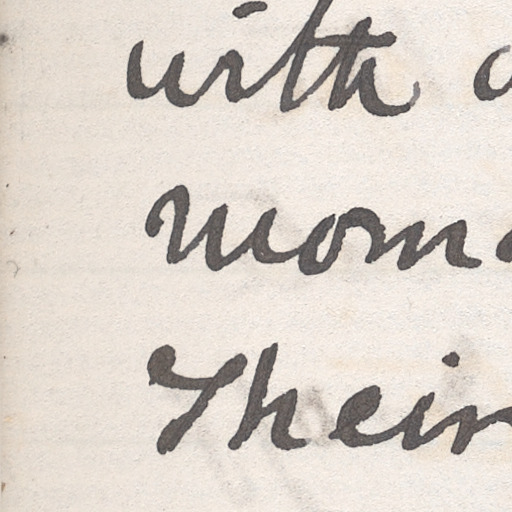 with
woma
Their